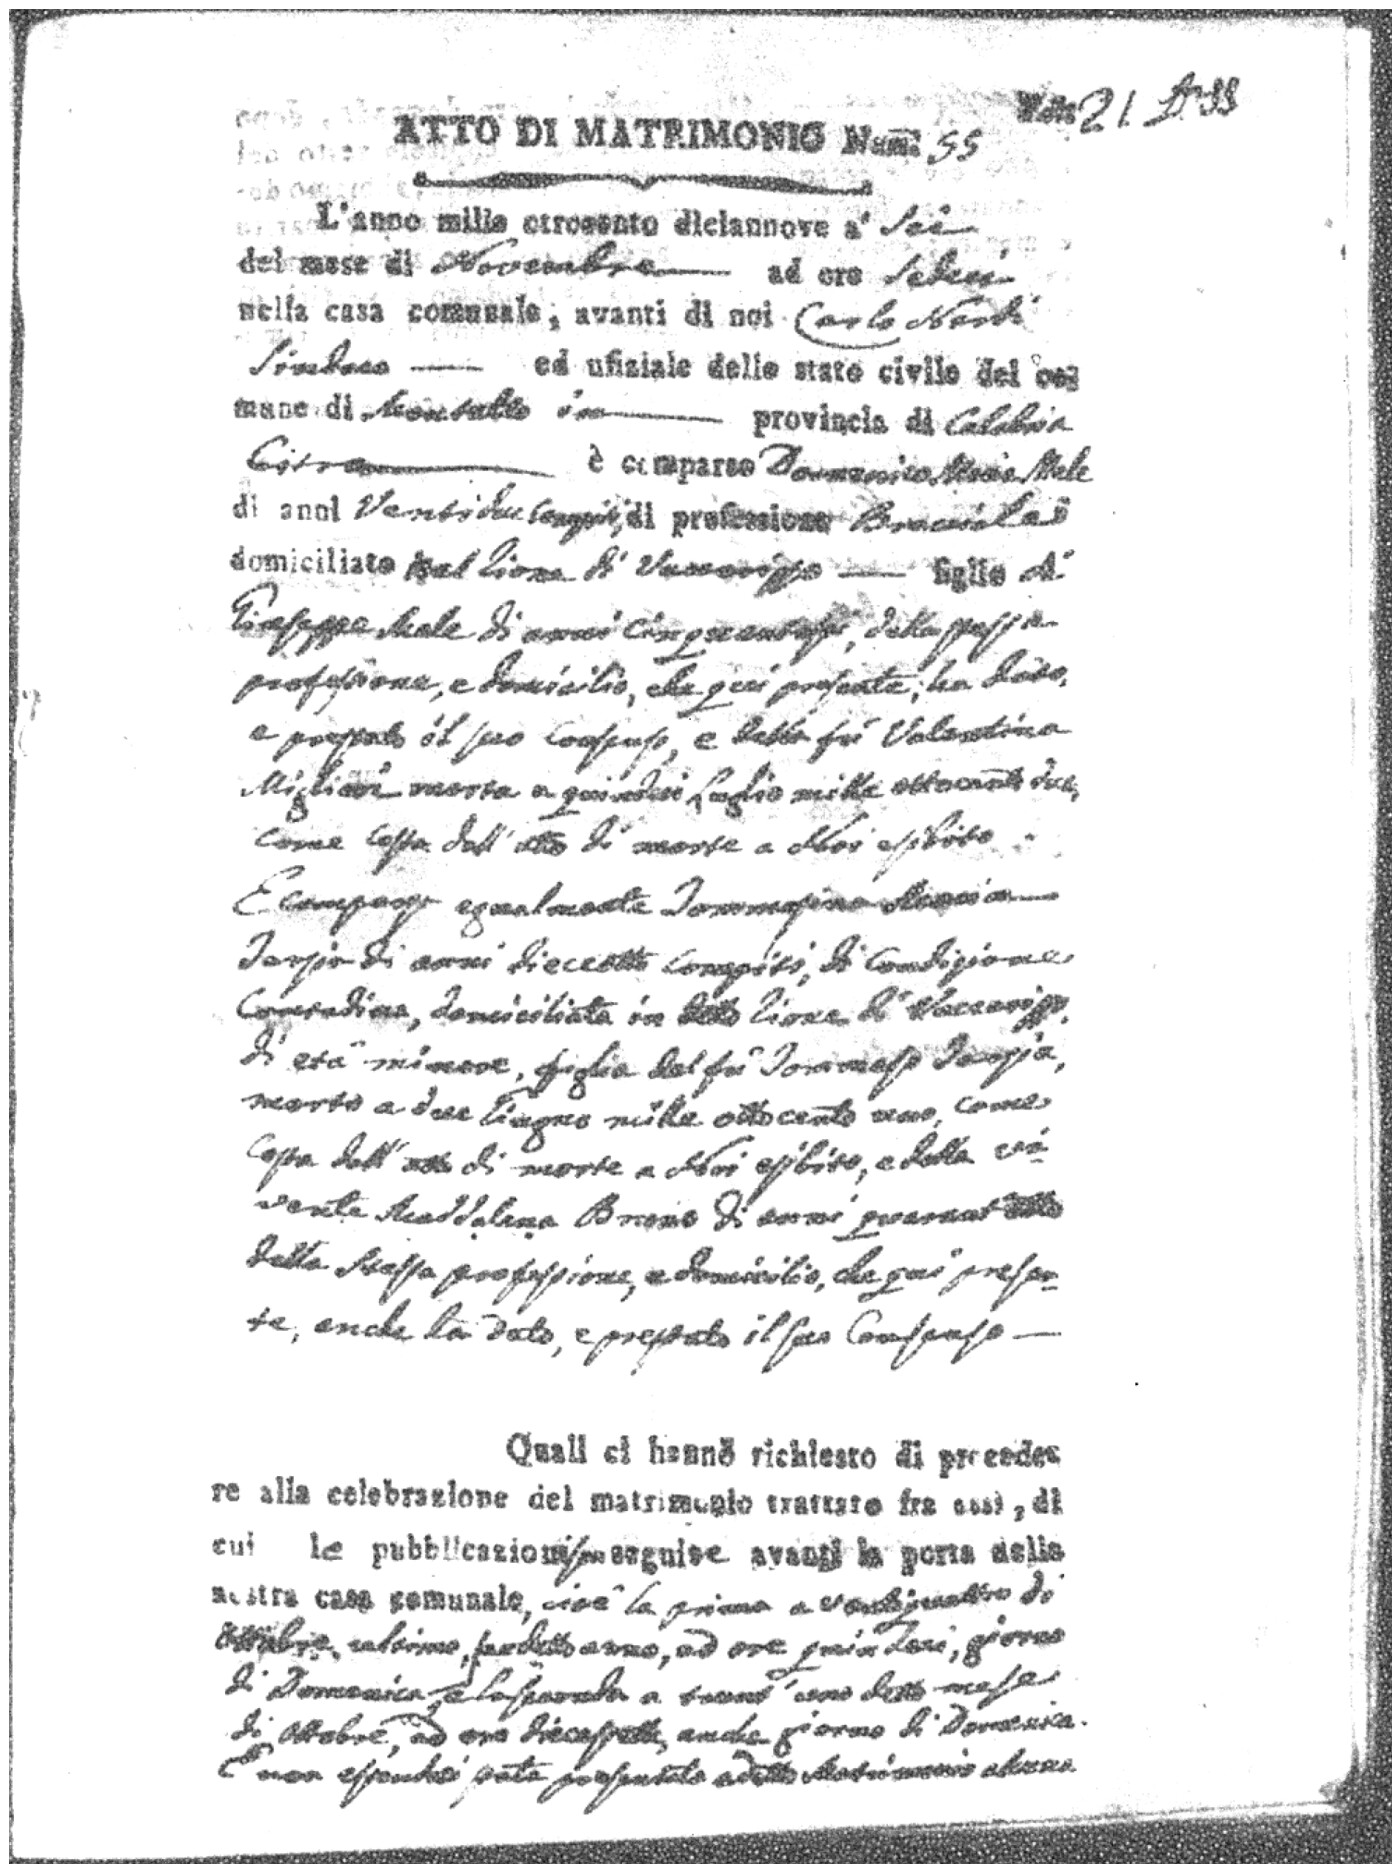 21
ATTO DI MATRIMONIO Num. 55
L'anno mille ottocento diciannove a' Sei
del mese di Novembre ad ore Sedeci
nella casa comunale, avanti di noi Carlo Nardi
Sindaco ed ufiziale dello stato civile del co-
mune di Montalto in provincia di Calabria
Citra è comparso Domenico Maria Mele
di anni Venti due compiti, di professione Bracciale
domiciliato nel Rione di Vaccarizzo figlio di
Giuseppe Mele di anni Cinquantasei, della stessa
professione, e domicilio, che quì presente, ha dato,
e prestato il suo Consenso, e della fù Valentina
Migliori morta a quindici Luglio mille ottocento due,
come costa dall'atto di morte a Noi esibito
E comparsa egualmente Tommasina Maria
Tarsia di anni dieceotto compiti, di condizione
Contadina, domiciliata in detto Rione di Vaccarizzo,
di età minore, figlia del fù Tommaso Tarsia,
morto a due Giugno mille ottocento uno, come
costa dall'atto di morte a Noi esibito, e della vi-
vente Maddalena Bruno di anni quarant'otto
della stessa professione, e domicilio, che quì presen-
te, anche ha dato, e prestato il suo Consenso
Quali ci hanno richiesto di procede-
re alla celebrazione del matrimonio trattato fra essi, di
cui le pubblicazioni son seguite avanti la porta della
nostra casa comunale, cioè la prima a ventiquattro di
Ottobre, ultimo, suddetto anno, ad ore quindeci, giorno
di Domenica, e la seconda a trent'uno detto mese
di Ottobre, ad ore diecesette, anche giorno di Domenica.
E non essendosi stata presentata a detto Matrimonio alcuna